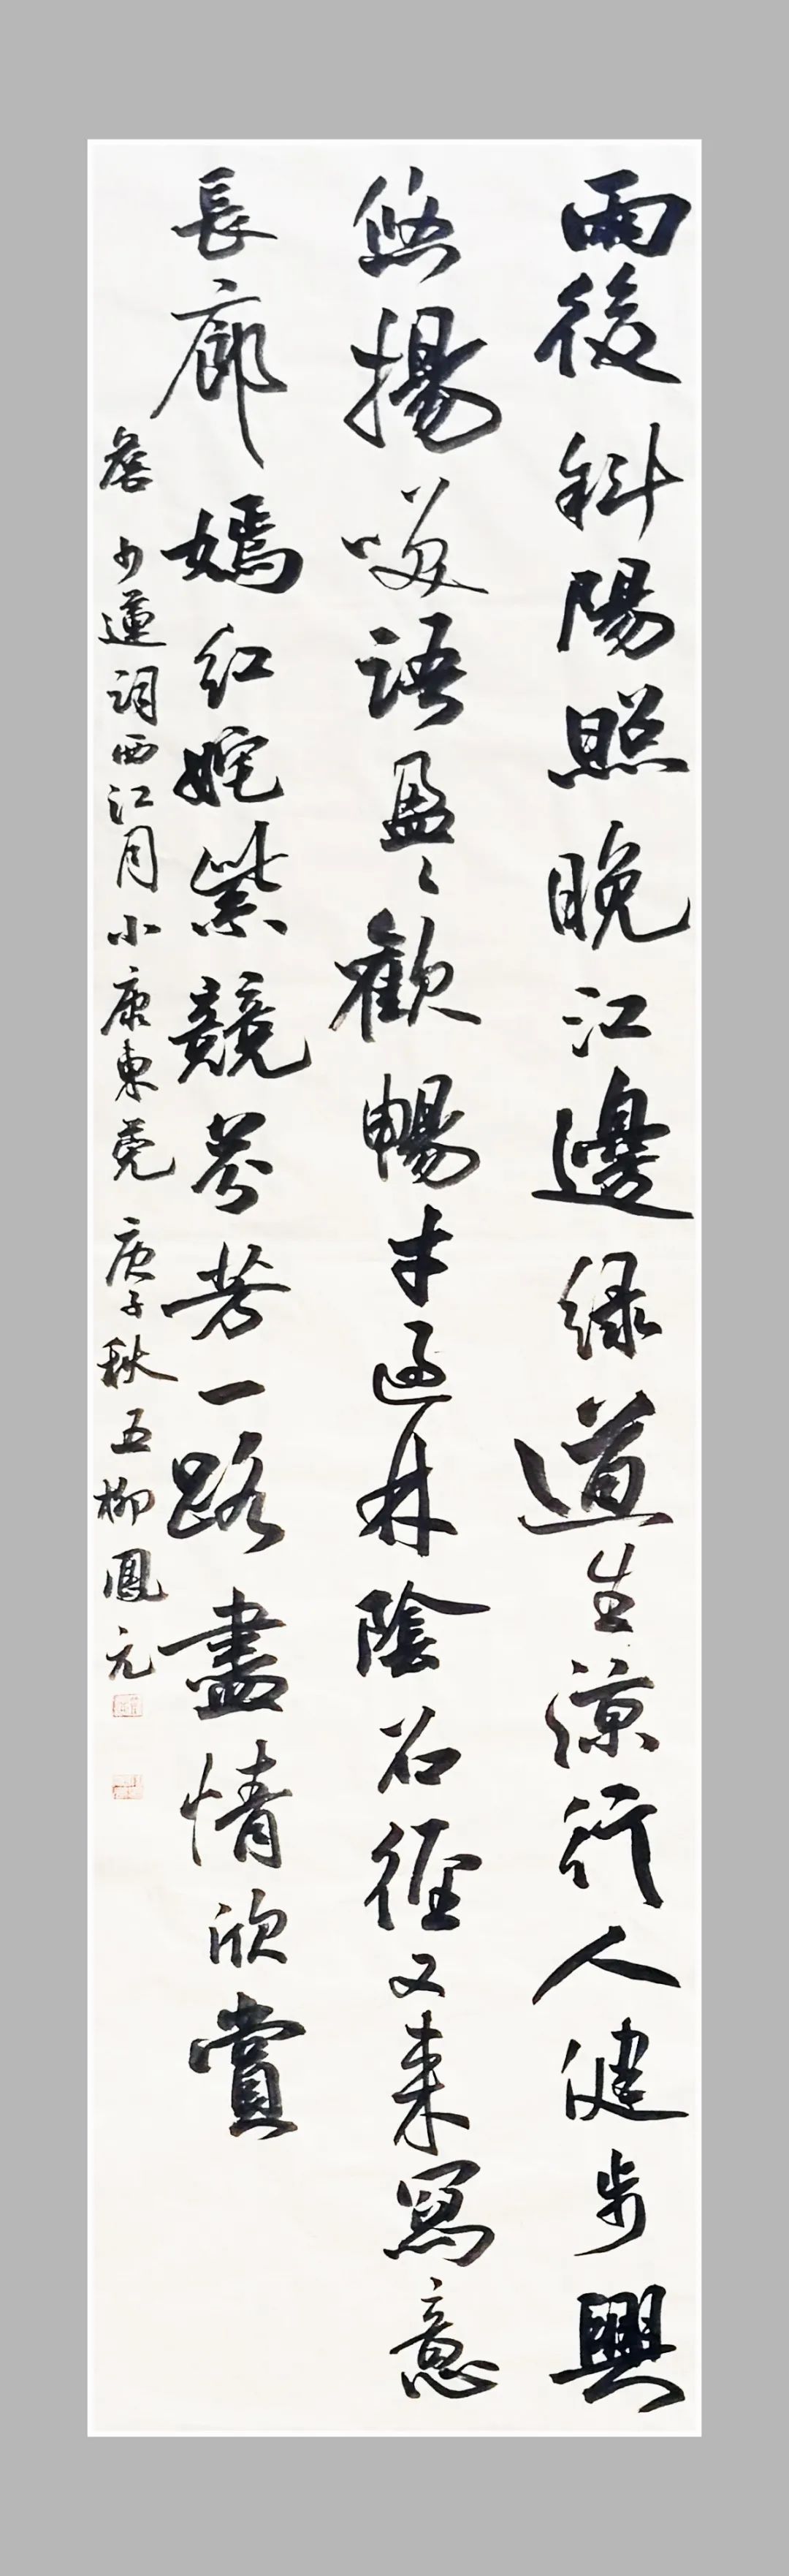 雨後斜陽照晚江邊绿道生涼行人健步興
悠揚咲語盈〻歡暢才過林陰石徑又来寫意
長廊嫣红姹紫競芬芳一路盡情欣賞
詹少蓮詞西江月小康東莞 庚子秋五柳鳳元